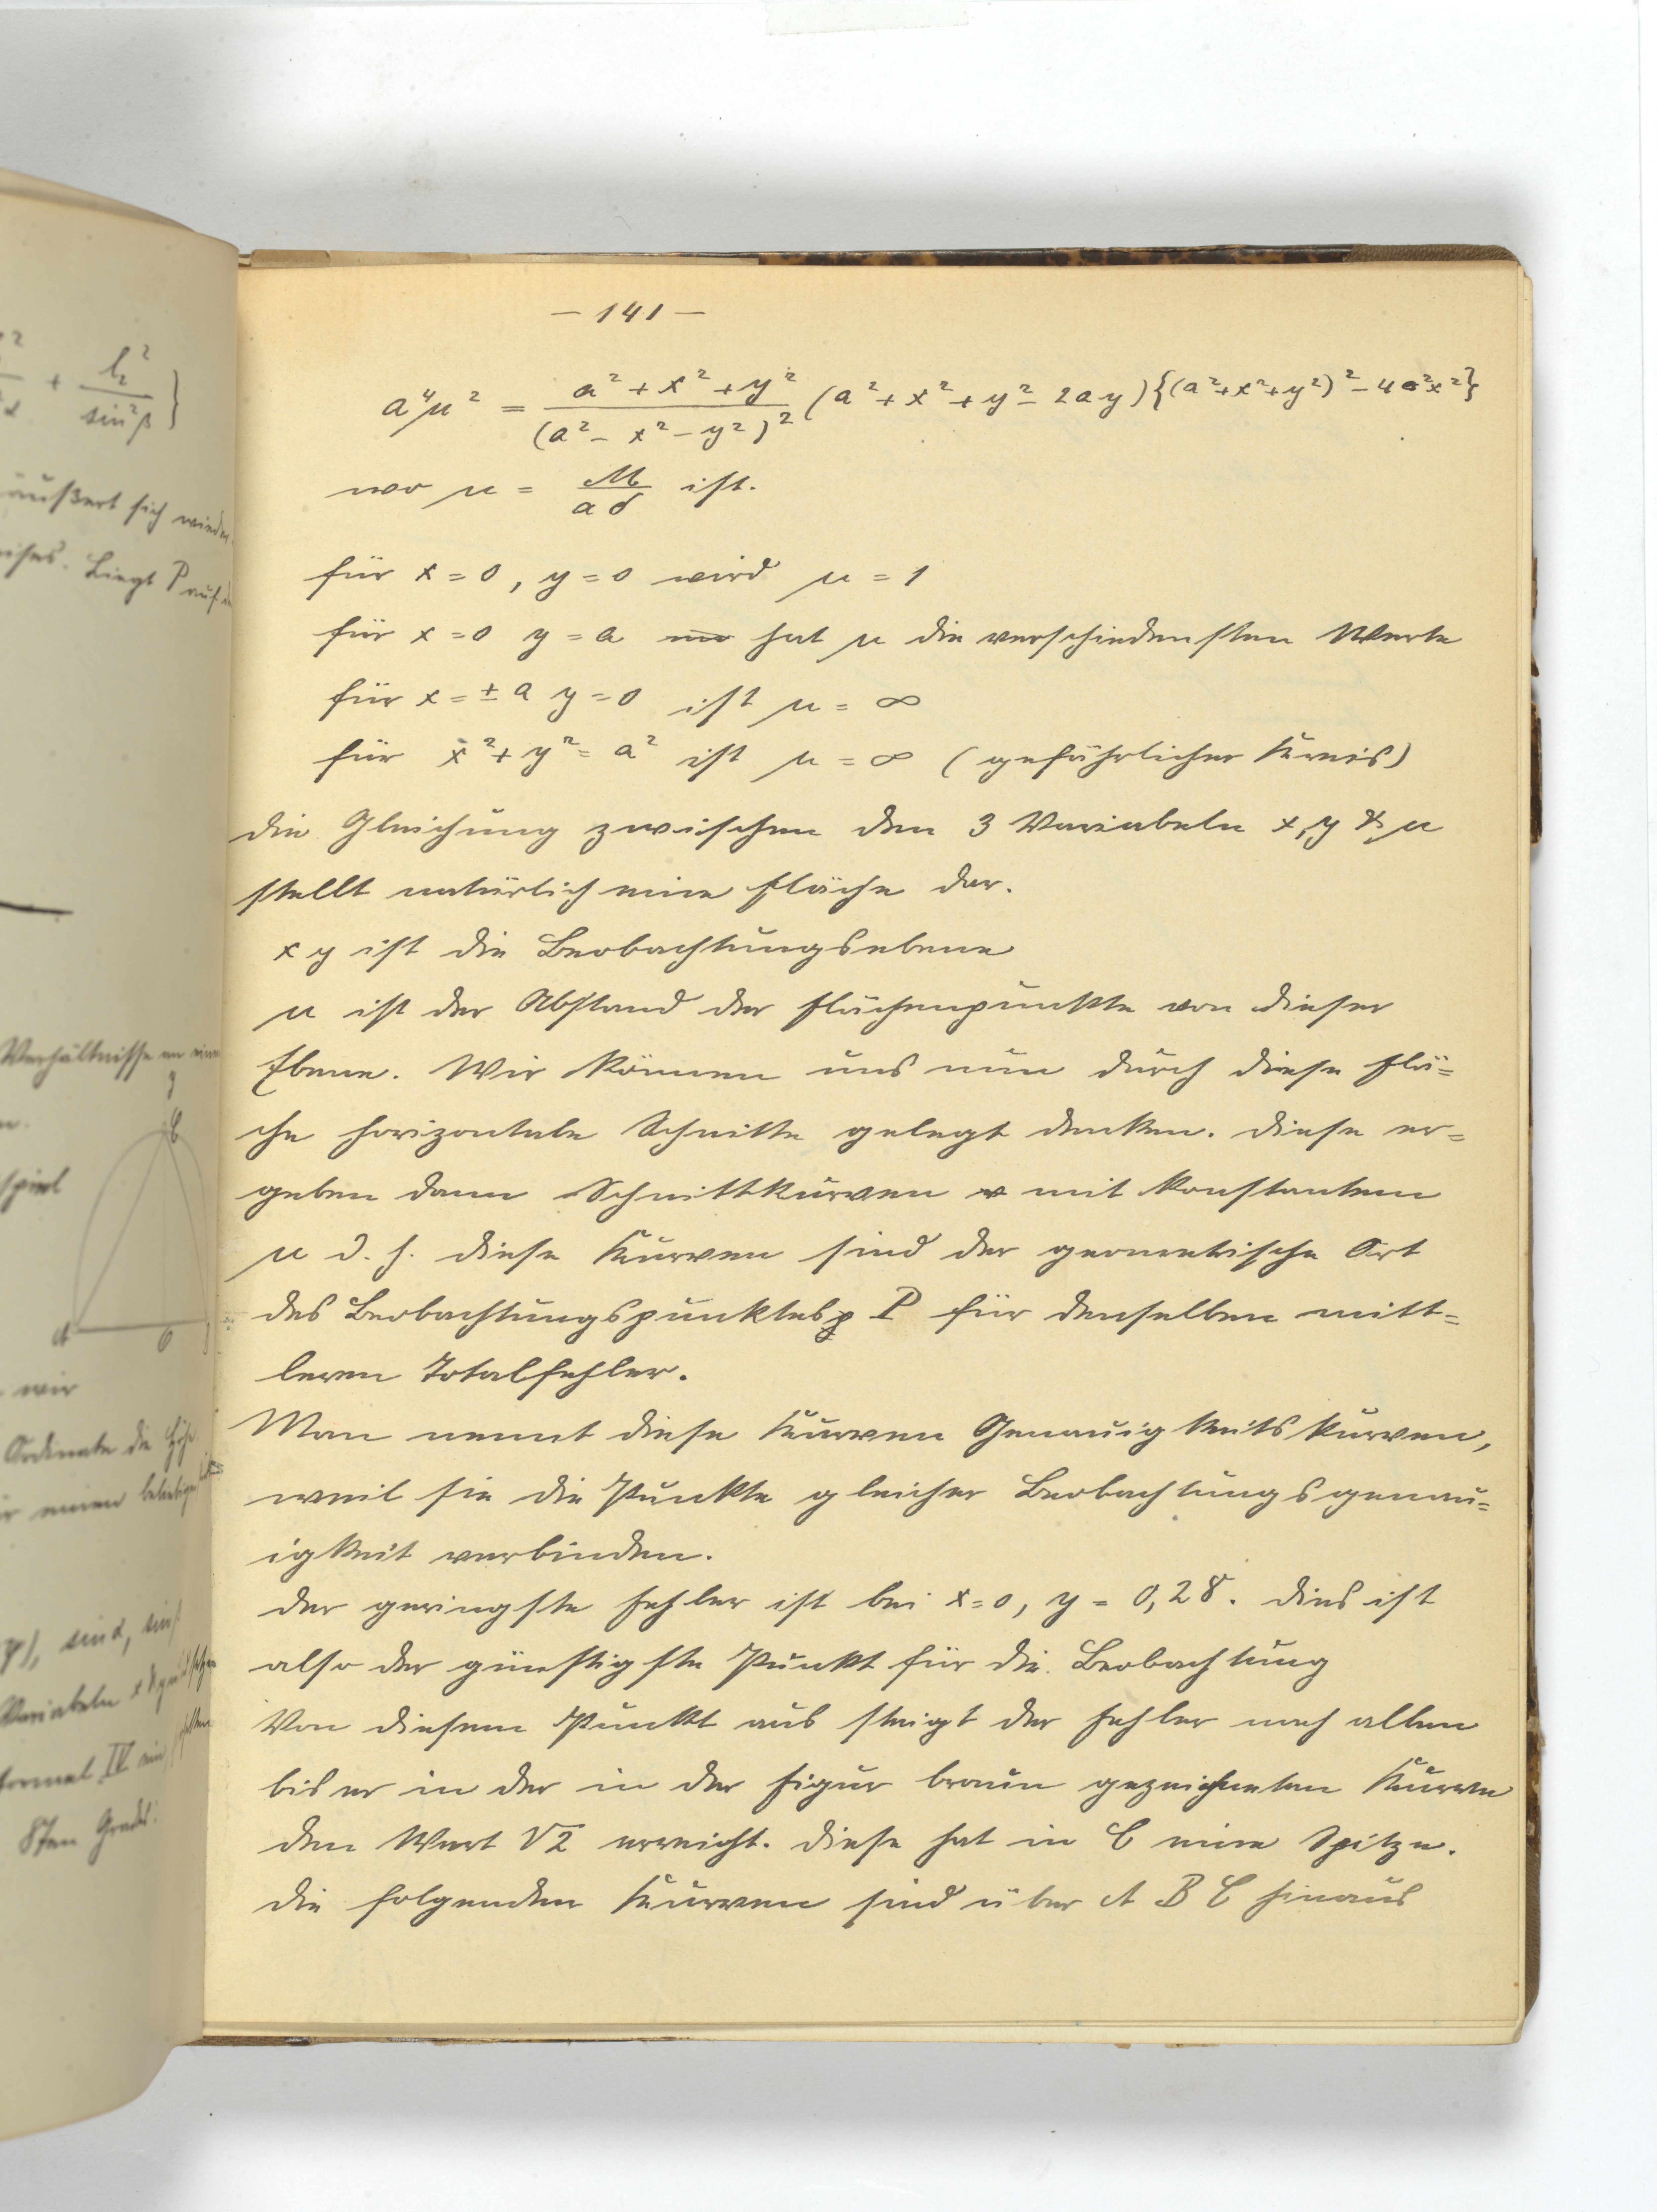 — 141 —
a⁴μ² = (a² + x² + y²) / (a² – x² – y²)² (a² + x² + y² – 2ay) {(a² + x² + y²)² – 4a²x²}
wo μ = M / aδ ist.
für x = 0, y = 0 wird μ = 1
für x = 0 y = a hat μ die verschiedensten Werte
für x = ± a y = 0 ist μ = ∞
für x² + y² = a² ist μ = ∞ (gefährlicher Kreis)
die Gleichung zwischen den 3 Variabeln x, y & μ
stellt natürlich eine Fläche dar.
x y ist die Beobachtungsebene
μ ist der Abstand der Flächenpunkte von dieser
Ebene. Wir können uns nun durch diese Flä=
che horizontale Schnitte gelegt denken. Diese er=
geben dann Schnittkurven mit konstantem
μ d. h. diese Kurven sind der geometrische Ort
des Beobachtungspunktes P für denselben mitt=
leren Totalfehler.
Man nennt diese Kurven Genauigkeitskurven,
weil sie die Punkte gleicher Beobachtungsgenau=
igkeit verbinden.
Der geringste Fehler ist bei x = 0, y = 0,28. Dies ist
also der günstigste Punkt für die Beobachtung
Von diesem Punkt aus steigt der Fehler nach allen
bis er in der in der Figur braun gezeichneten Kurve
den Wert √2 erreicht. Diese hat in C eine Spitze.
Die folgenden Kurven sind über A B C hinaus
+ l₂² / sin²β }
äußert sich wieder
Liegt P auf
Verhältnisse an einem
y
C
A
0
wir
Ordinate die Höhe
einen beliebigen
sin α, sin β
Variabeln x & y
Formel IV ein,
8ten Grades: